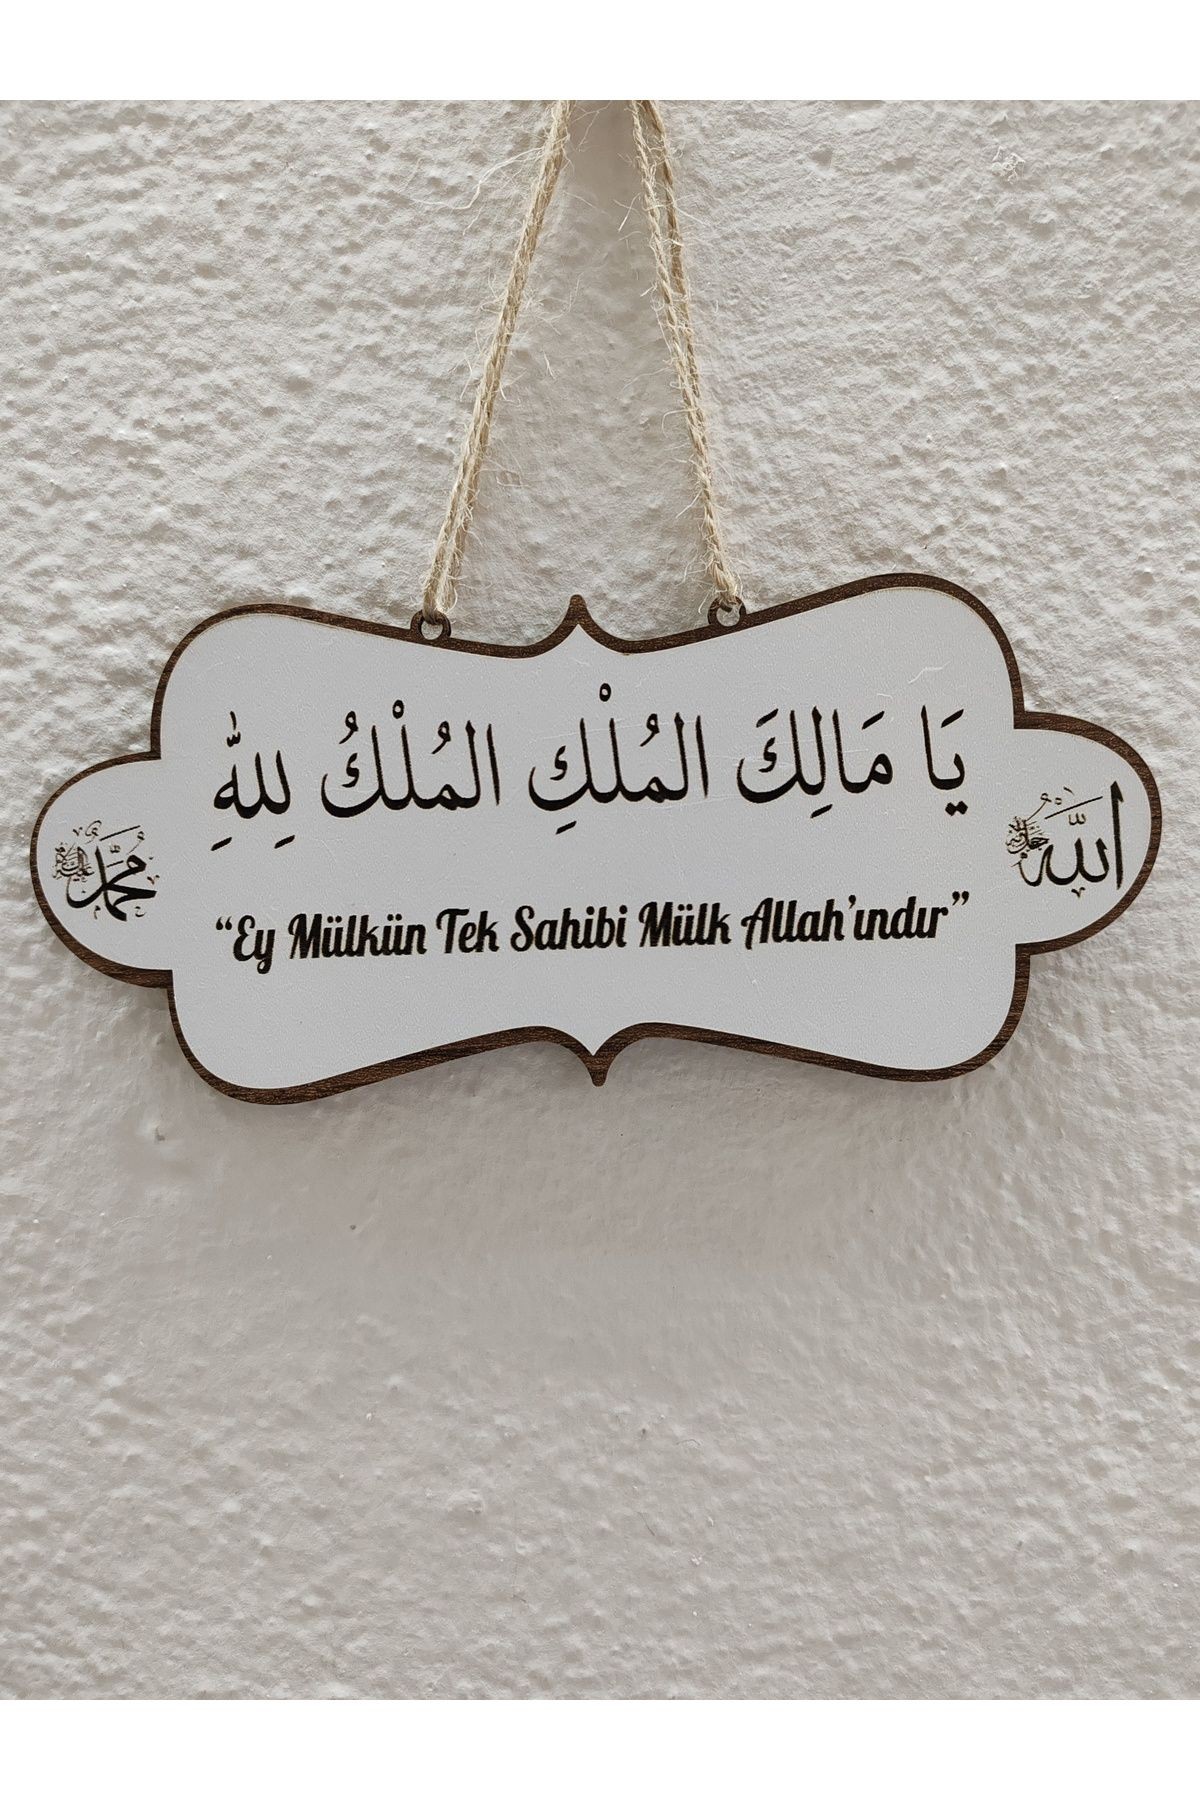 يَا مَالِكَ المُلْكِ المُلْكُ لِلهِ
الله جل جلاله
محمد عليه السلام
“Ey Mülkün Tek Sahibi Mülk Allah’ındır”